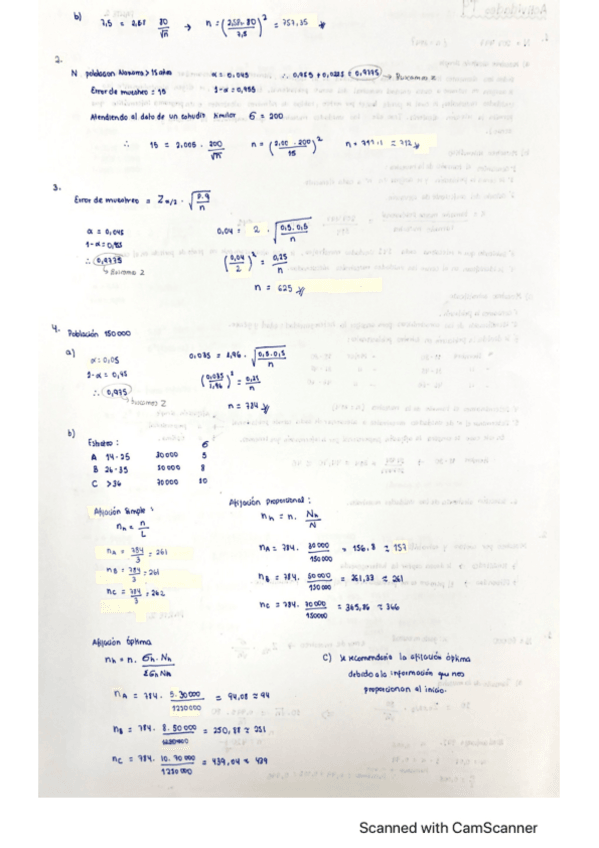 b) 7,5 = 2,58 80/√n → n = (2,58·80/7,5)² = 757,35
2.
N población Navarra > 15 años α = 0,045 ∴ 0,955 + 0,0225 = 0,9775 → Buscamos z
Error de muestreo = 15 1-α = 0,955
Atendiendo al dato de un estudio similar σ = 200
∴ 15 = 2,005 · 200/√n n = (2,00 · 200/15)² n =
3.
Error de muestreo = Z α/2 · √(p.q/n)
α = 0,045 0,04 = 2 · √(0,5.0,5/n)
1-α = 0,955
∴ 0,9775 (0,04/2)² = 0,25/n
→ Buscamos z
n = 625
4. Población 150000
a) α = 0,05 0,035 = 1,96 . √(0,5.0,5/n)
1-α = 0,95 (0,035/1,96)² = 0,25/n
∴ 0,975
→ Buscamos z n = 784
b)
Estratos : σ
A 14-25 30000 5
B 26-35 50000 8
C >36 70000 10
Afijación simple :
nh = n/L
nA = 784/3 = 261
nB = 784/3 = 261
nC = 784/3 = 262
Afijación proporcional :
nh = n. Nh/N
nA = 784. 30000/150000 = 156.8 ≈ 157
nB = 784. 50000/150000 = 261,33 ≈ 261
nC = 784. /150000 = 365,86 ≈ 366
Afijación óptima
nh = n. σh.Nh/Σσh Nh
nA = 784. 5.30000/1250000 = 94,08 ≈ 94
nB = 784. 8.50000/1250000 = 250,88 ≈ 251
nC = 784. 10.70000/1250000 = 439,04 ≈ 439
c) Se recomendaría la afijación óptima
debido a la información que nos
proporcionan al inicio.
Scanned with CamScanner